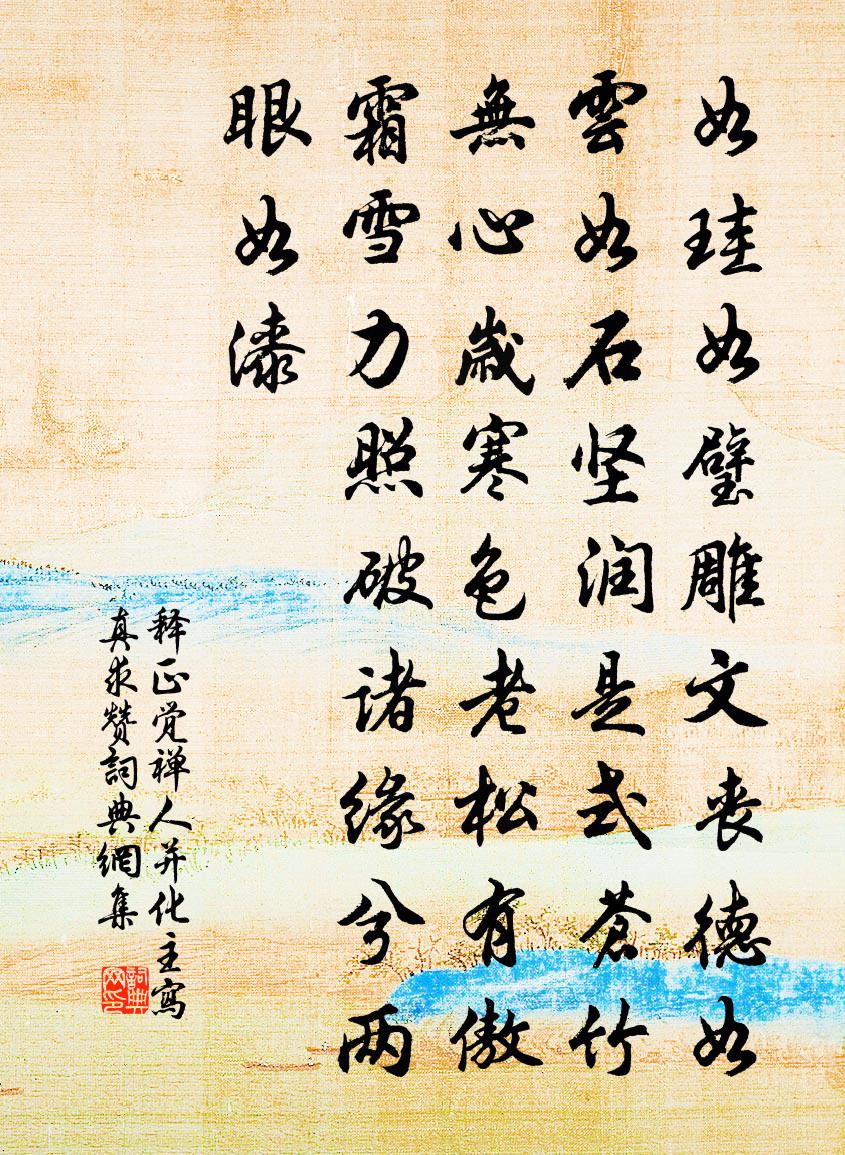 如珪如璧雕文丧德如
雲如石坚润是式蒼竹
無心歳寒色老松有傲
霜雪力照破诸缘兮两
眼如漆
释正觉禅人并化主寫
真求赞詞典網集
詞典
网印